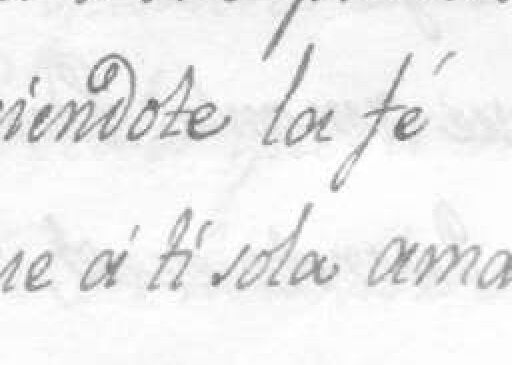 iendote la fé
ue á tí sola ama